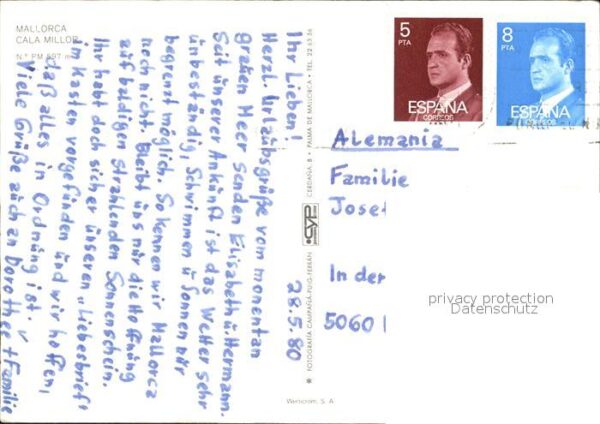 MALLORCA
CALA MILLOR
N.° PM 897
28.5.80
Ihr Lieben!
Herzl. Urlaubsgrüße vom momentan
grauen Meer senden Elizabeth u Hermann.
Seit unserer Ankunft ist das Wetter sehr
unbeständig, Schwimmen u Sonnen nur
begrenzt möglich. So kennen wir Mallorca
noch nicht. Bleibt uns nur die Hoffnung
auf baldigen strahlenden Sonnenschein.
Ihr habt doch sicher unseren "Liebesbrief"
im Kasten vorgefunden und wir hoffen,
daß alles in Ordnung ist.
Viele Grüße auch an Dorothee + Familie
FOTOGRAFIA CAMPAÑA-PUIG-FERRAN
cyp
CERDAÑA, 8 • PALMA DE MALLORCA • TEL. 22 63 56
Wericolm, S. A.
5
PTA
ESPAÑA
CORREOS
8
PTA
ESPAÑA
CORREOS
Alemania
Familie
Josef
In der
5060
privacy protection
Datenschutz